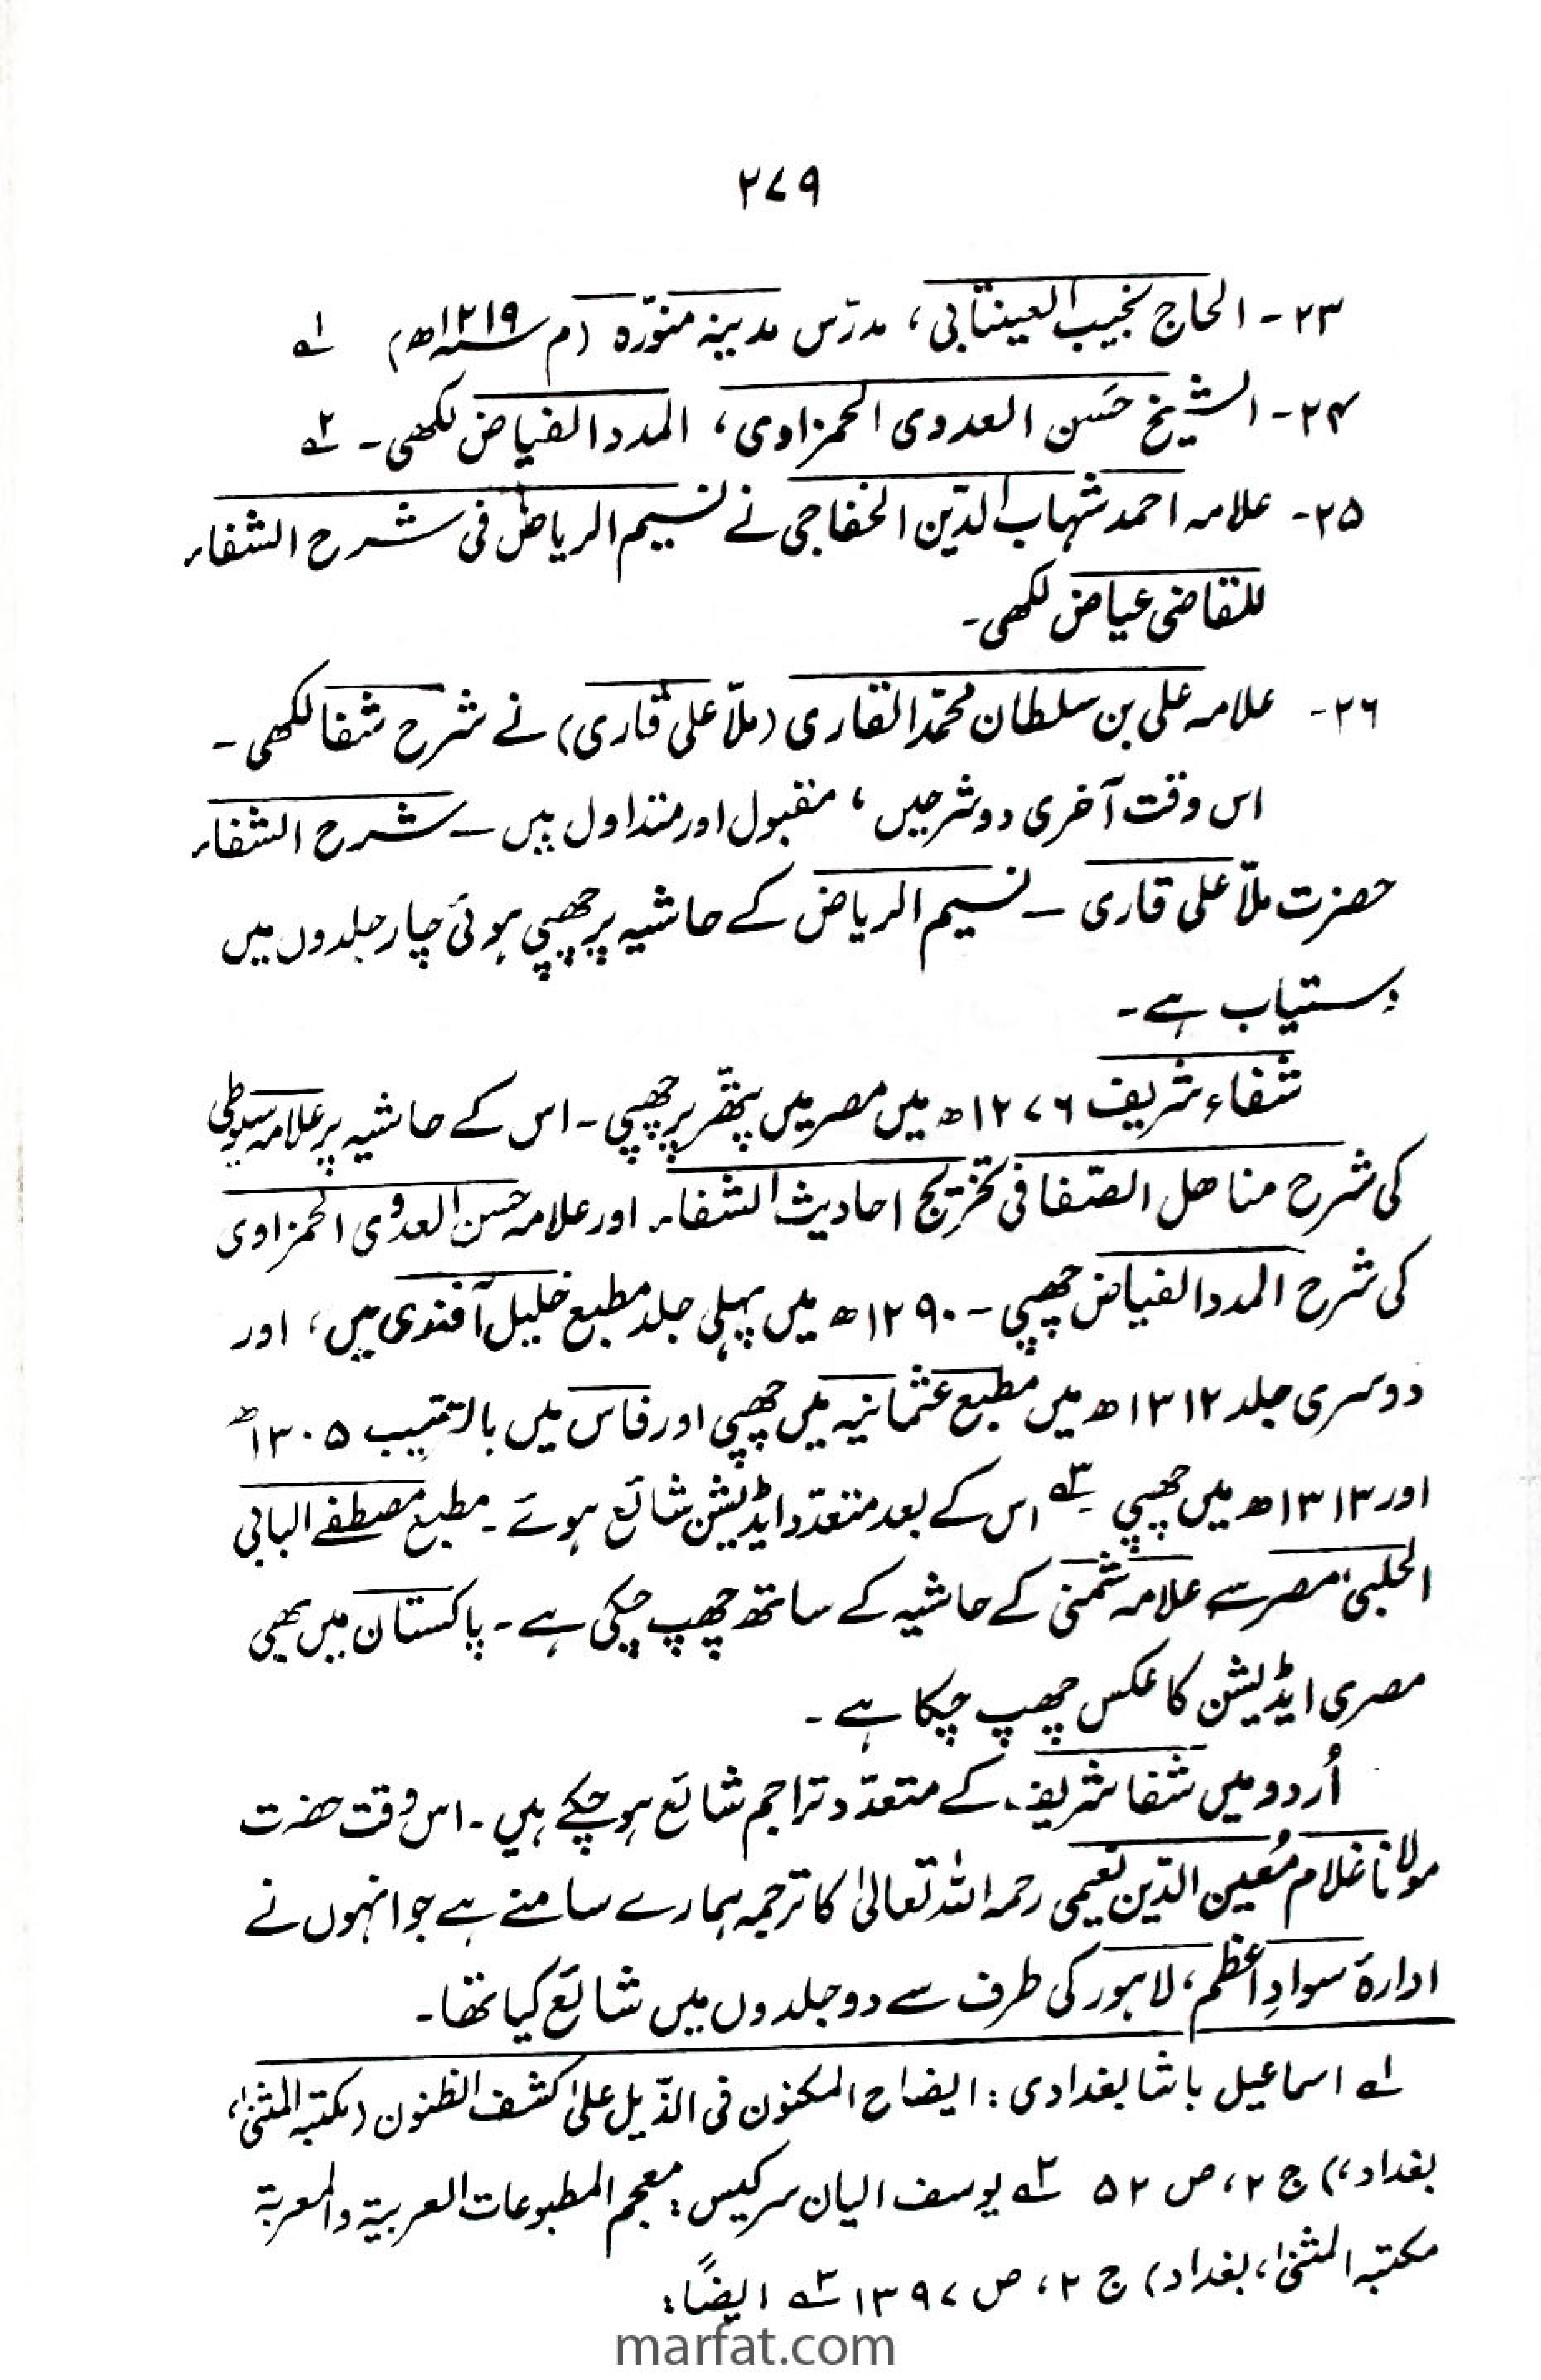 ۲۷۹
۲۳- الحاج نجیب العینتابی، مدرّس مدینہ منوّرہ (م ۱۲۱۹ھ) ۱؎
۲۴- الشیخ حَسن العدوی الحمزاوی، المدد الفیاض لکھی۔ ۲؎
۲۵- علامہ احمد شہاب الدّین الخفاجی نے نسیم الریاض فی شرح الشفاء
للقاضی عیاض لکھی۔
۲۶- علامہ علی بن سلطان محمّد القاری (ملّا علی قاری) نے شرح شفا لکھی۔
اس وقت آخری دو شرحیں، مقبول اور متداول ہیں — شرح الشفاء
حضرت ملّا علی قاری — نسیم الریاض کے حاشیہ پر چھپی ہوئی چار جلدوں میں
دستیاب ہے۔
شفاء شریف ۱۲۷۶ھ میں مصر میں پتھّر پر چھپی۔ اس کے حاشیہ پر علامہ سیوطی
کی شرح مناھل الصّفا فی تخریج احادیث الشفاء اور علامہ حسن العدوی الحمزاوی
کی شرح المدد الفیاض چھپی۔ ۱۲۹۰ھ میں پہلی جلد مطبع خلیل آفندی میں، اور
دوسری جلد ۱۳۱۲ھ میں مطبع عثمانیہ میں چھپی اور فاس میں بالترتیب ۱۳۰۵ھ
اور ۱۳۱۳ھ میں چھپی ۳؎ اس کے بعد متعدّد ایڈیشن شائع ہوئے۔ مطبع مصطفے البابی
الحلبی، مصر سے علامہ شُمنی کے حاشیہ کے ساتھ چھپ چکی ہے۔ پاکستان میں بھی
مصری ایڈیشن کا عکس چھپ چکا ہے۔
اُردو میں شفا شریف کے متعدّد تراجم شائع ہو چکے ہیں۔ اس وقت حضرت
مولانا غلام مُعین الدّین نعیمی رحمہ اللہ تعالیٰ کا ترجمہ ہمارے سامنے ہے جو انہوں نے
ادارۂ سوادِ اعظم، لاہور کی طرف سے دو جلدوں میں شائع کیا تھا۔
۱؎ اسماعیل باشا بغدادی: ایضاح المکنون فی الذّیل علیٰ کشف الظنون (مکتبہ المثنیٰ،
بغداد،) ج ۲، ص ۵۲ ۲؎ یوسف الیان سرکیس: معجم المطبوعات العربیۃ والمعربۃ
مکتبہ المثنیٰ، بغداد) ج ۲، ص ۱۳۹۷ ۳؎ ایضًا:
marfat.com